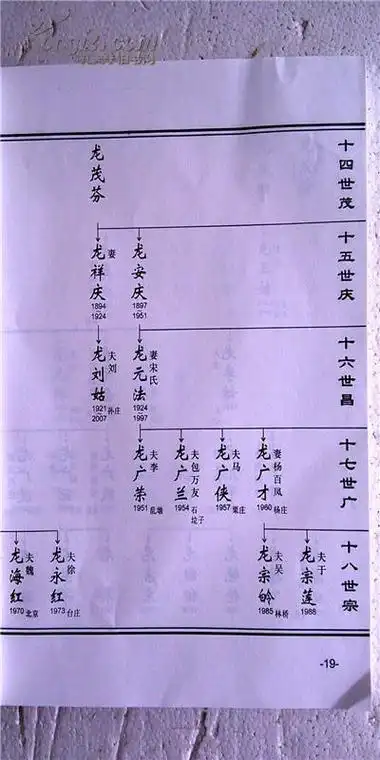 十四世茂
龙茂芬
十五世庆
龙安庆
1897
1951
龙祥庆
妻
1894
1924
十六世昌
龙元法
妻宋氏
1924
1997
龙刘姑
夫刘
1921
2007
孙庄
十七世广
龙广才
妻杨百凤
1960
杨庄
龙广侠
夫马
1957
栗庄
龙广兰
夫包万友
1954
石垃子
龙广荣
夫李
1951
乱墩
十八世宗
龙宗莲
夫于
1988
龙宗皊
夫吴
1985
林桥
龙永红
夫徐
1973
台庄
龙海红
夫魏
1970
北京
-19-